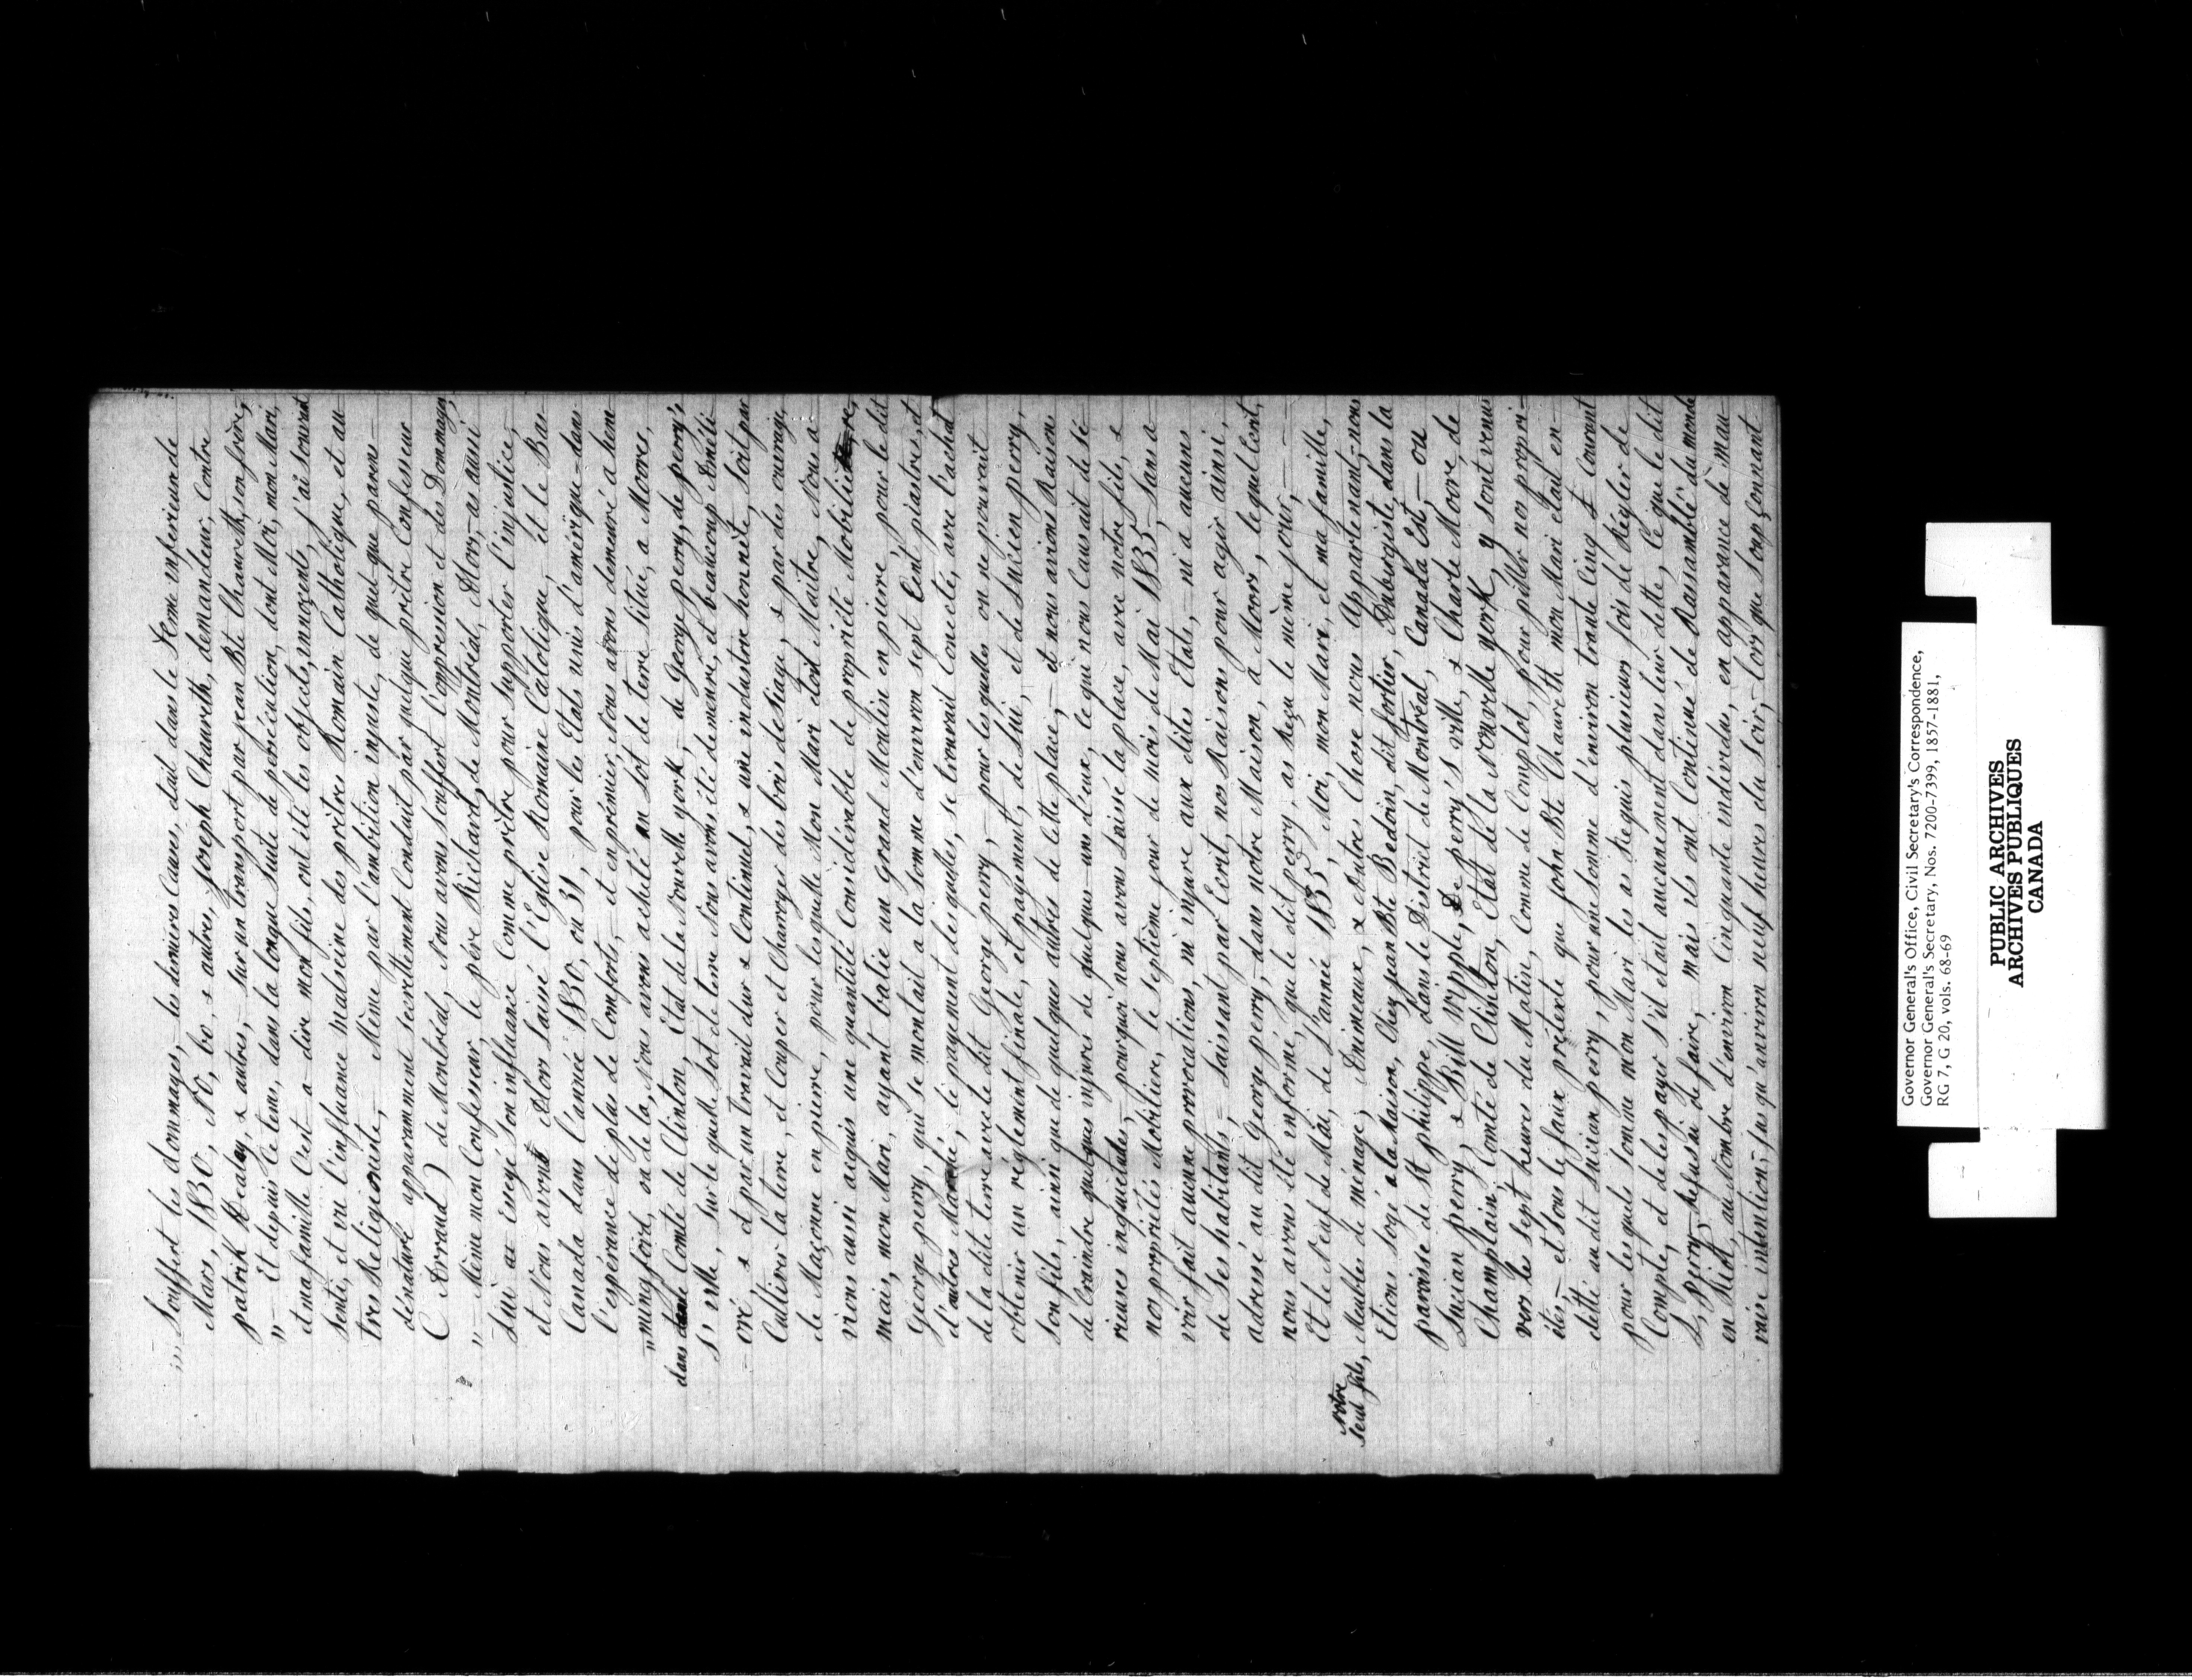 ,,, Souffert les dommages, – les dernières Causes, était dans le Terme inférieur de
Mars, 1830, No, 60, & autres, Joseph Chaureth, demandeur, Contre
patrik Readay, & autres, – sur un transport par jean Bte Chaureth, son frère,
,, – Et depuis Ce tems, dans la longue Suite de persécution, dont Moi, mon Mari,
et ma famille C'est – a – dire mon fils, ont été les objects, innocents, j'ai souvent
senti, et vu l'influance malseine des prêtres Romain Catholique, et au
tres Religionists, – Même par l'ambition injuste, de quelque parens –
dénaturé apparamment secrettement Conduit par quelque prêtre Confesseur
( Arraud ) de Montréal, Nous avons souffert l'oppression et des Dommages,
,, – Même mon Confesseur, le père Richard, de Montréal, Alors, – as aussi
Lui as Envoyé son influance Comme prêtre pour supporter l'injustice,
et Nous avons Alors laissé l'Eglise Romaine Catolique, et le Bas
Canada dans l'année 1830, ou 31, pour les Etats unis d'amérique – dans
l'espérance de plus de Comforts, – et en prémier, Nous avons demeuré a hem
,, mingford, ou de la, Nous avons acheté un Lot de terre situé, a Moors,
dans Comté de Clinton, Etat de la Nouvelle york – de George perry, de perry's
s' ville, sur le quelle Lot de terre Nous avons été demeuré, et beaucoup Améli
– oré, & et par un travail dur & Continuel, & une industrie honnête, soit par
Cultiver la terre, et Couper et Charroyer des bois de Siage, & par des ouvrage,
de Maçonne en pierre, pour lesquelle Mon Mari etoit Maitre, Nous a
vions aussi acquis une quantité Considérable de propriété Mobilière,
mais, mon Mari, ayant batie un grand Moulin en pierre, pour le dit
George perry, qui se montait a la somme d'environ sept Cent piastres, et
d'autres Marché, le payement desquelles, se trouvait Conecté, avec l'achat
de la dite terre avec le dit George perry, – pour lesquelles on ne pouvait
obtenir un réglement finale, et payement, de Lui, et de Lucien perry,
son fils, ainsi que de quelques autres de Cette place, – et nous avions Raison
de Craindre quelques injures de quelques – uns d'eux, le qui nous Causait de sé
rieuses inquietudes, – pourquoi nous avons laissé la place, avec notre fils, &
nos propriétés Mobiliere, le septième jour de mois de Mai 1835 – sans a
voir fait aucune provocations, ni injure aux dites Etats, ni a aucuns
de ses habitants, – Laissant par Ecrit, nos Raisons pour agir ainsi,
adressé au dit George perry, – dans notre Maison, à Moors, lequel écrit,
nous avons été informé, que le dit perry, as Reçu le même jour, –
Et le Neuf de Mai, de l'année 1835, Moi, mon Mari, et ma famille,
notre
seul fils, Meubles de ménage, Animeaux, & Autres Chose nous Appartenant, – nous
Etions logé a la Maison, Chez jean Bte Bedoin, dit fortier, Aubergiste, dans la
paroisse de St philippe, dans le District de Montréal, Canada Est, – ou
Lucian perry, & Bill Wipple, De perry's ville, & Charle Moore, de
Champlain, Comté de Clinton, Etat de la nouvelle york, y sont venus
vers le sept heures du Matin, Comme de Complot, pour piller nos propri –
étés – et sous le faux prétexte que john Bte Chaureth mon Mari etait en –
detté au dit Lucian perry, pour une somme d'environ trante Cinq £ Courant
pour lesquels somme mon Mari les as Requis plusieurs fois de Régler de
Compte, et de les payer s'il etait aucunement dans leur dette, Ce que le dit
L, perry, Refusai de faire, – mais ils ont Continué de Rassamblé du monde
en Riot, au Nombre d'environ Cinquante indévedus, en apparance de mau –
vaise intention, – jus qu'anviron neuf heures du soir, – lors que soupçonnant
Governor General's Office, Civil Secretary's Correspondence,
Governor General's Secretary, Nos. 7200-7399, 1857-1881,
RG 7, G 20, vols. 68-69
PUBLIC ARCHIVES
ARCHIVES PUBLIQUES
CANADA